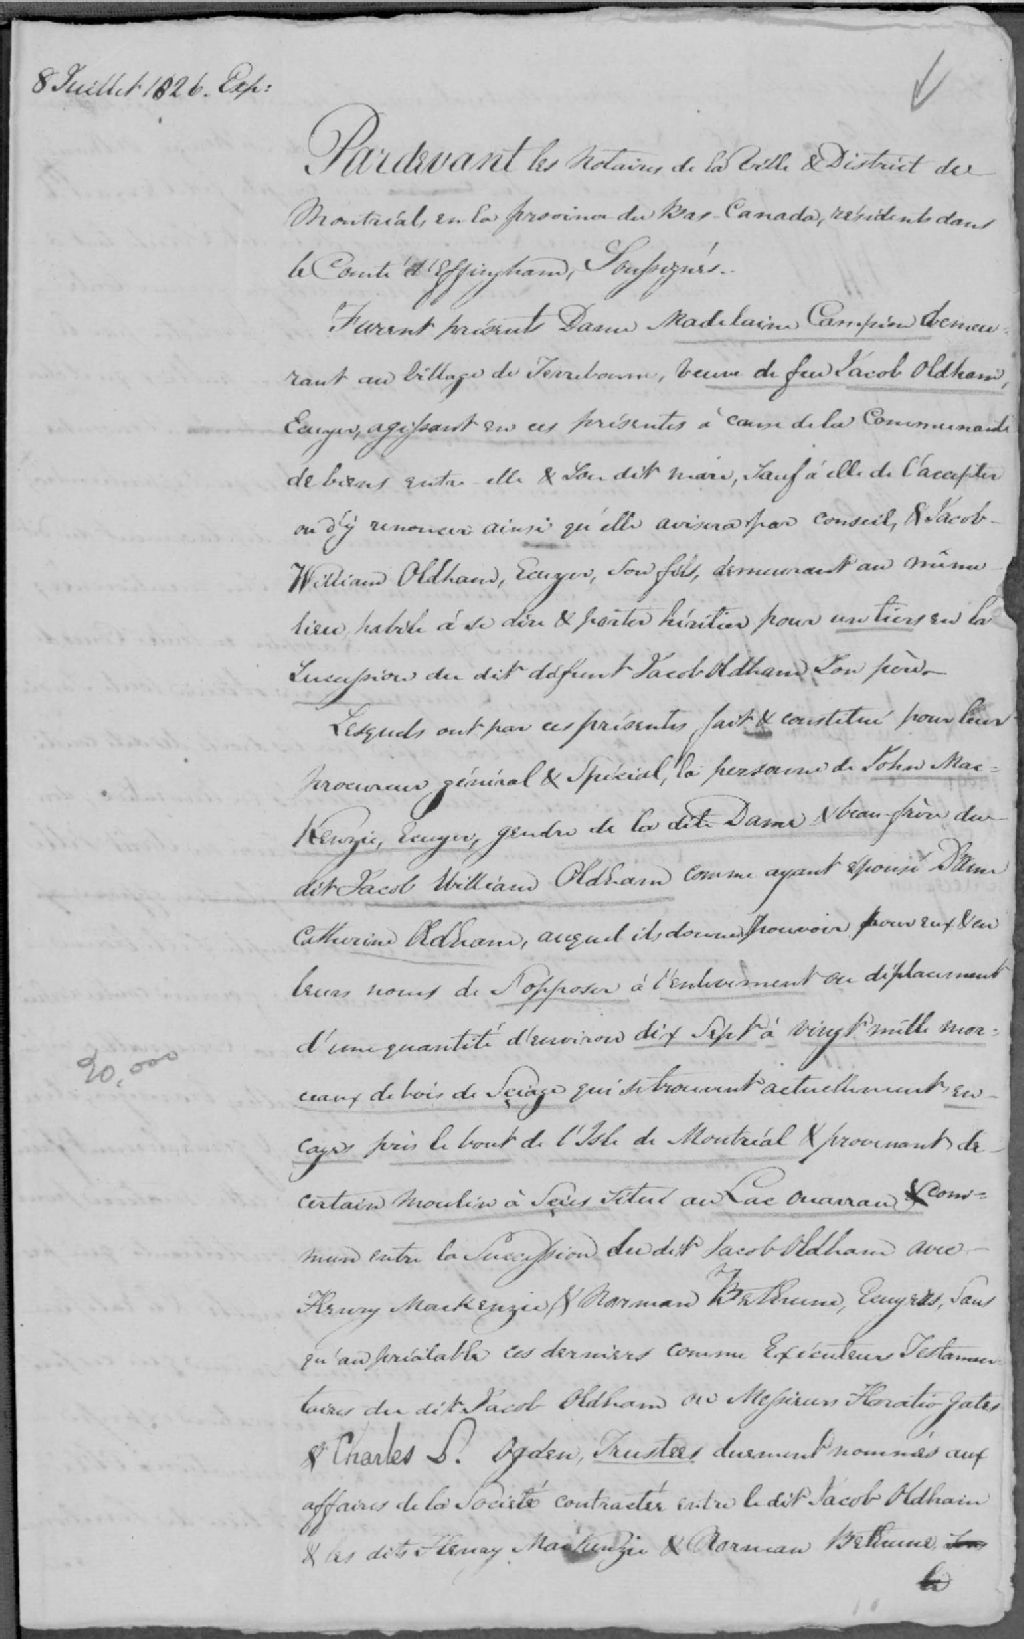 8 Juillet 1826. Exp:
Pardevant les Notaires de la Ville & District de
Montréal, en la province du Bas-Canada, résidents dans
le Comté d'Effingham, Soussignés.
Furent présents Dame Madelaine Campion demeu-
rant au Village de Terrebonne, Veuve de feu Jacob Oldham,
Ecuyer, agissant en ces présentes à cause de la Communauté
de biens entre elle & Son dit mari, Sauf à elle de l'accepter
ou d'y renoncer ainsi qu'elle avisera par conseil, & Jacob
William Oldham, Ecuyer, Son fils, demeurant au même
lieu, habile à se dire & porter héritier pour un tiers en la
Succession du dit défunt Jacob Oldham Son père.
Lesquels ont par ces présentes fait & constitué pour leur
procureur général & Spécial, la personne de John Mac-
Kenzie, Ecuyer, gendre de la dite Dame & beau-frère du
dit Jacob William Oldham comme ayant epousé Dame
Catherine Oldham, auquel ils donnent pouvoir pour eux & en
leurs noms de S'opposer à l'enlevement ou déplacement
d'une quantité d'environ dix Sept à vingt mille mor-
20,000
ceaux de bois de Sciage qui se trouvent actuellement en
cages près le bout de l'Isle de Montréal & provenant de
certain moulin à Scies situé au Lac Ouarrau & com-
mun entre la Succession du dit Jacob Oldham avec
Henry MacKenzie & Norman Bethune, Ecuyers, Sans
qu'au préalable ces derniers comme Exécuteurs Testamen-
taires du dit Jacob Oldham ou Messieurs Horatio Gates
& Charles L. Ogden, Trustees duement nommés aux
affaires de la Société contractée entre le dit Jacob Oldham
& les dits Henry MacKenzie & Norman Bethune